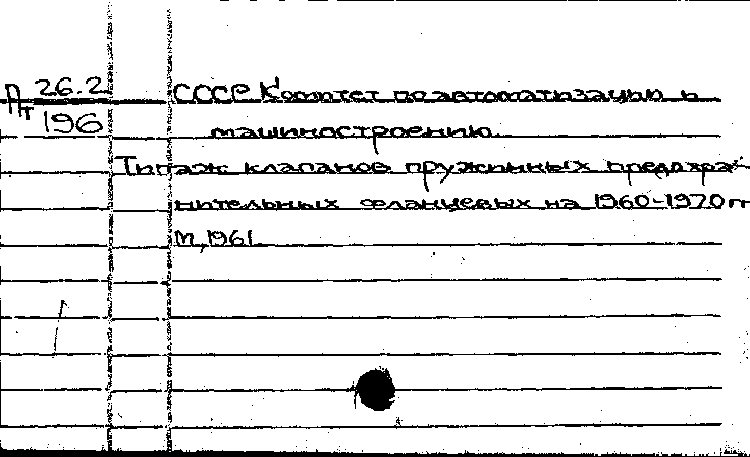 Пт 26.2
196
СССР Комитет по автоматизации и
машиностроению.
Типаж клапанов пружинных предохра-
нительных фланцевых на 1960-1970 гг
М, 1961.